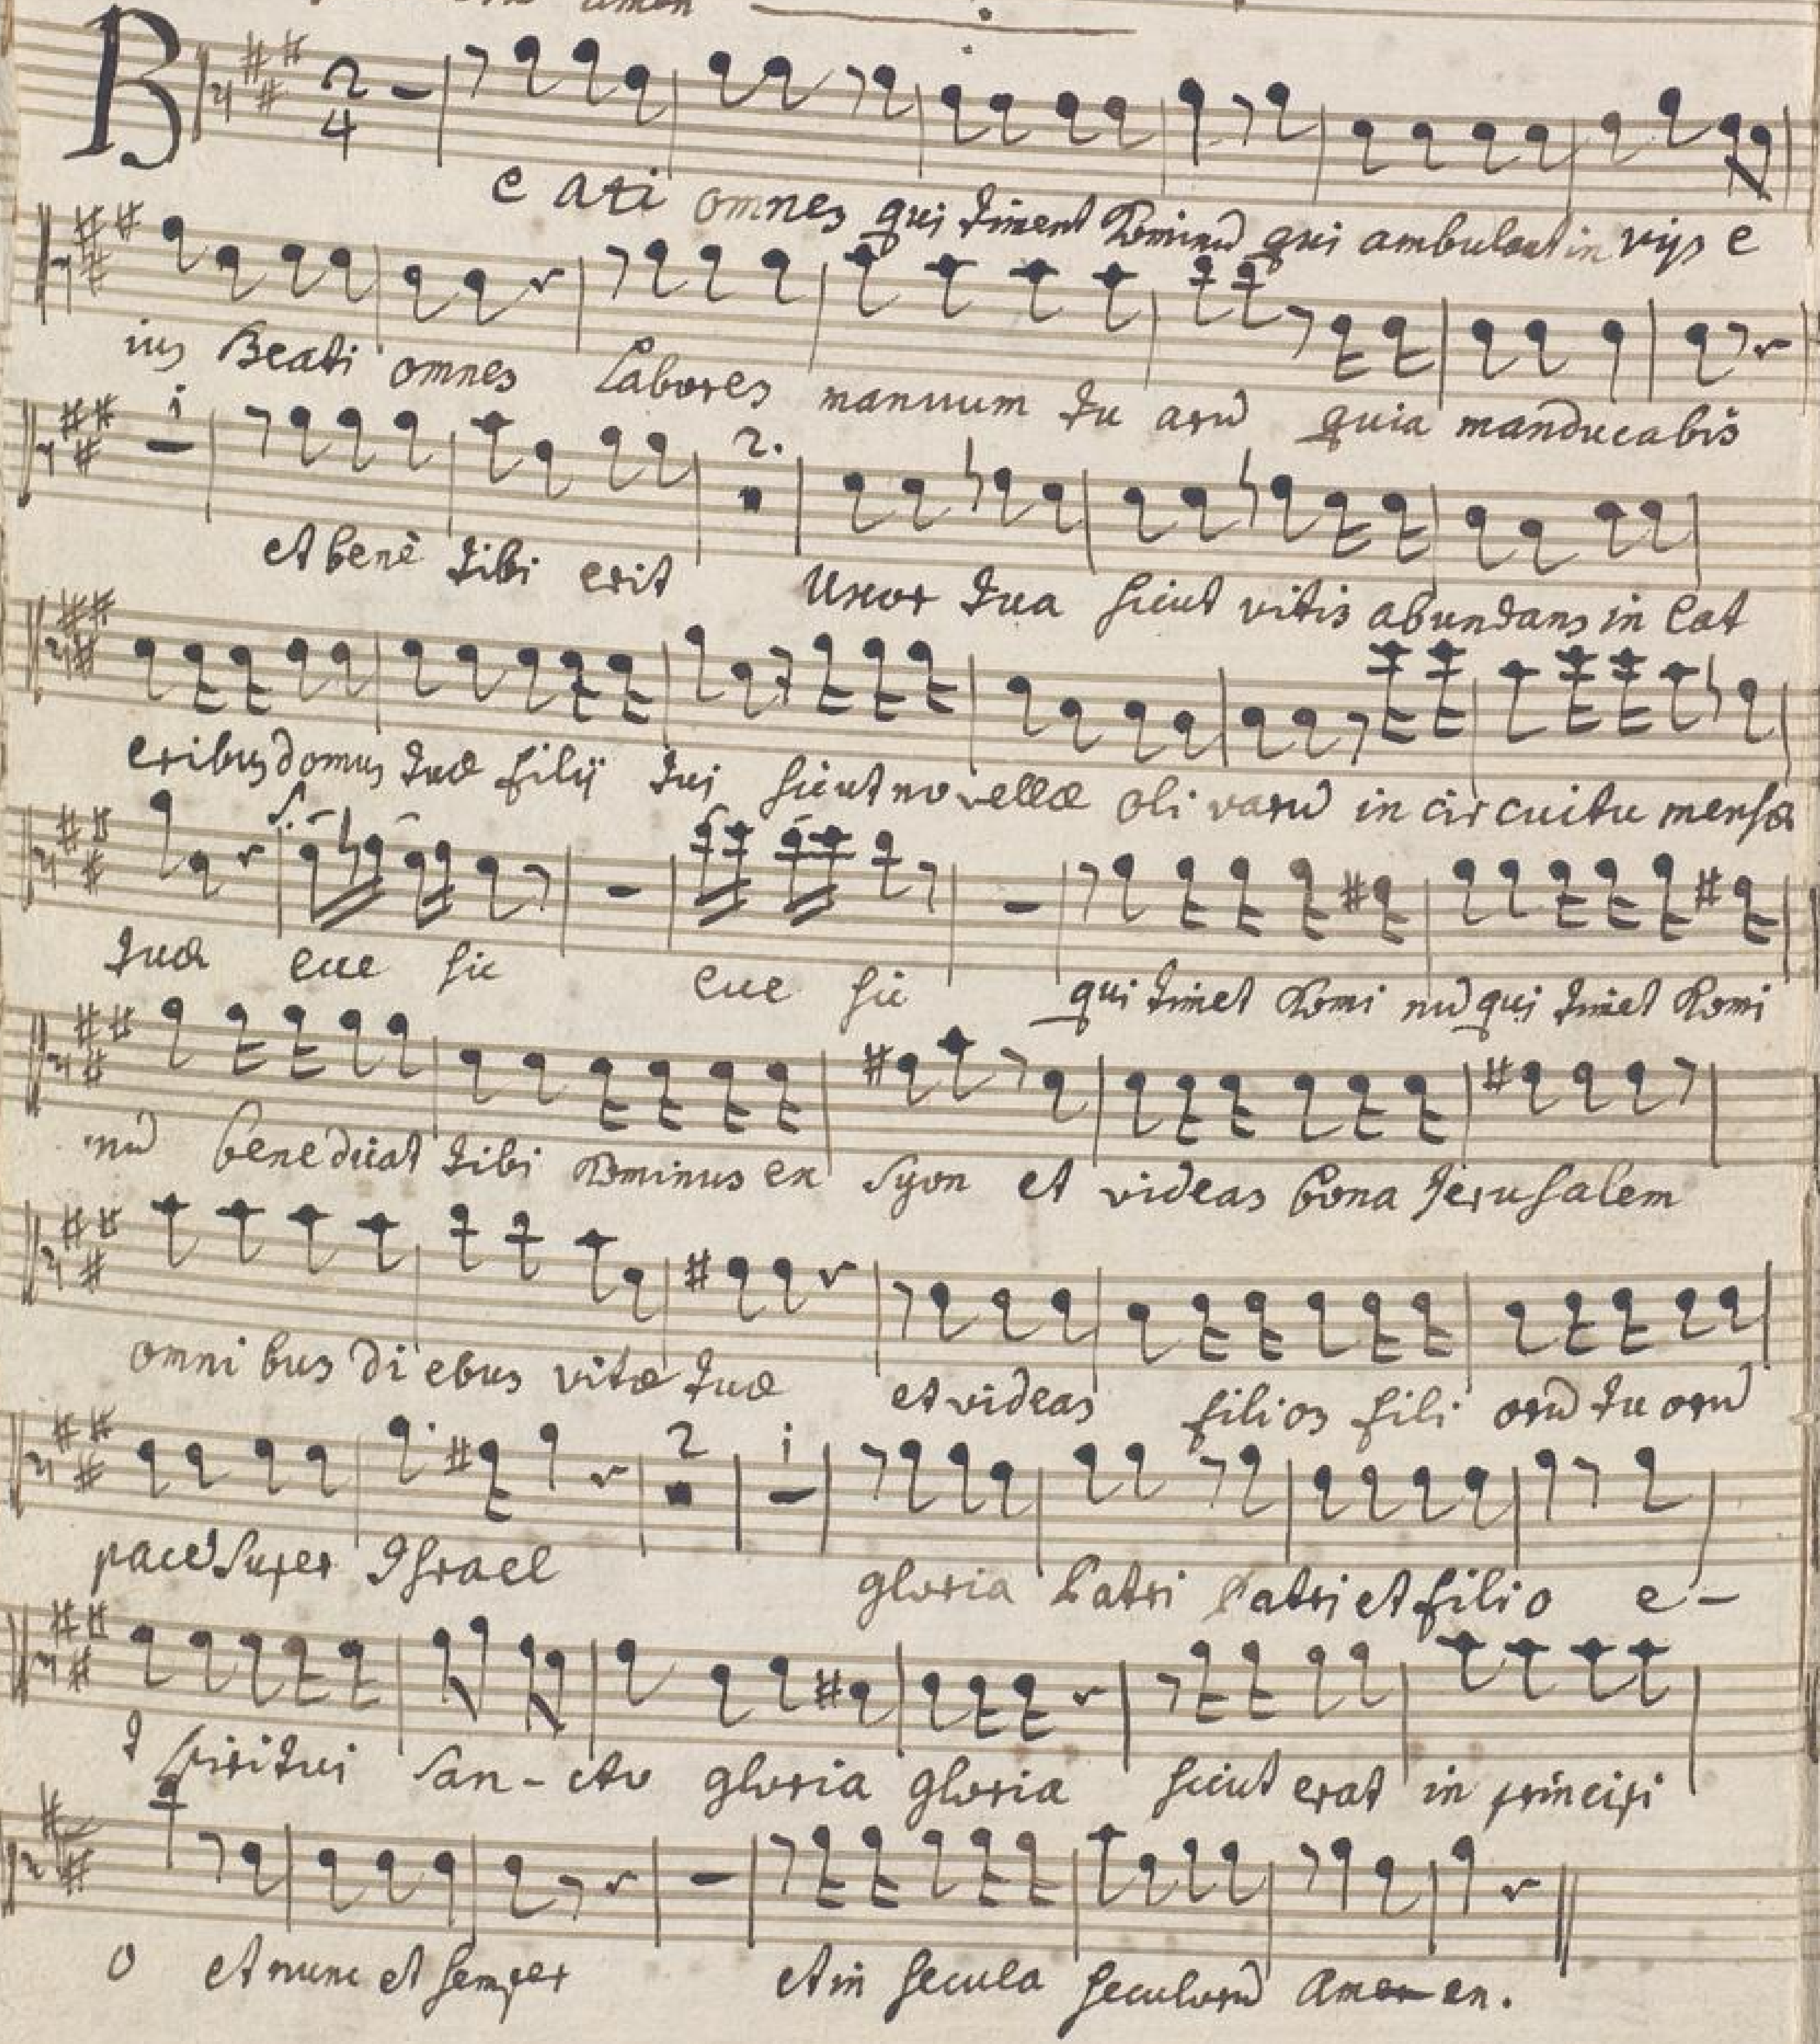 amen
B
2
4
e ati omnes qui timent Dominũ qui ambulant in vijs e
ius Beati omnes Labores manuum tu arũ quia manducabis
i
2.
et benè tibi erit Uxor tua sicut vitis abundans in Lat
eribus domus tuæ filij tui sicut novellæ oli varũ in circuitu mensæ
S.
tuæ ecce sic ecce sic qui timet Domi nũ qui timet Domi
nũ benedicat tibi Dominus ex Syon et videas bona Jerusalem
omni bus di ebus vitæ tuæ et videas filios fili orũ tu orũ
2
i
pacẽ Super Israel gloria Patri Patri et filio e-
t Spiritui San-cto gloria gloria sicut erat in principi
o et nunc et semper et in secula seculorũ Amen en.